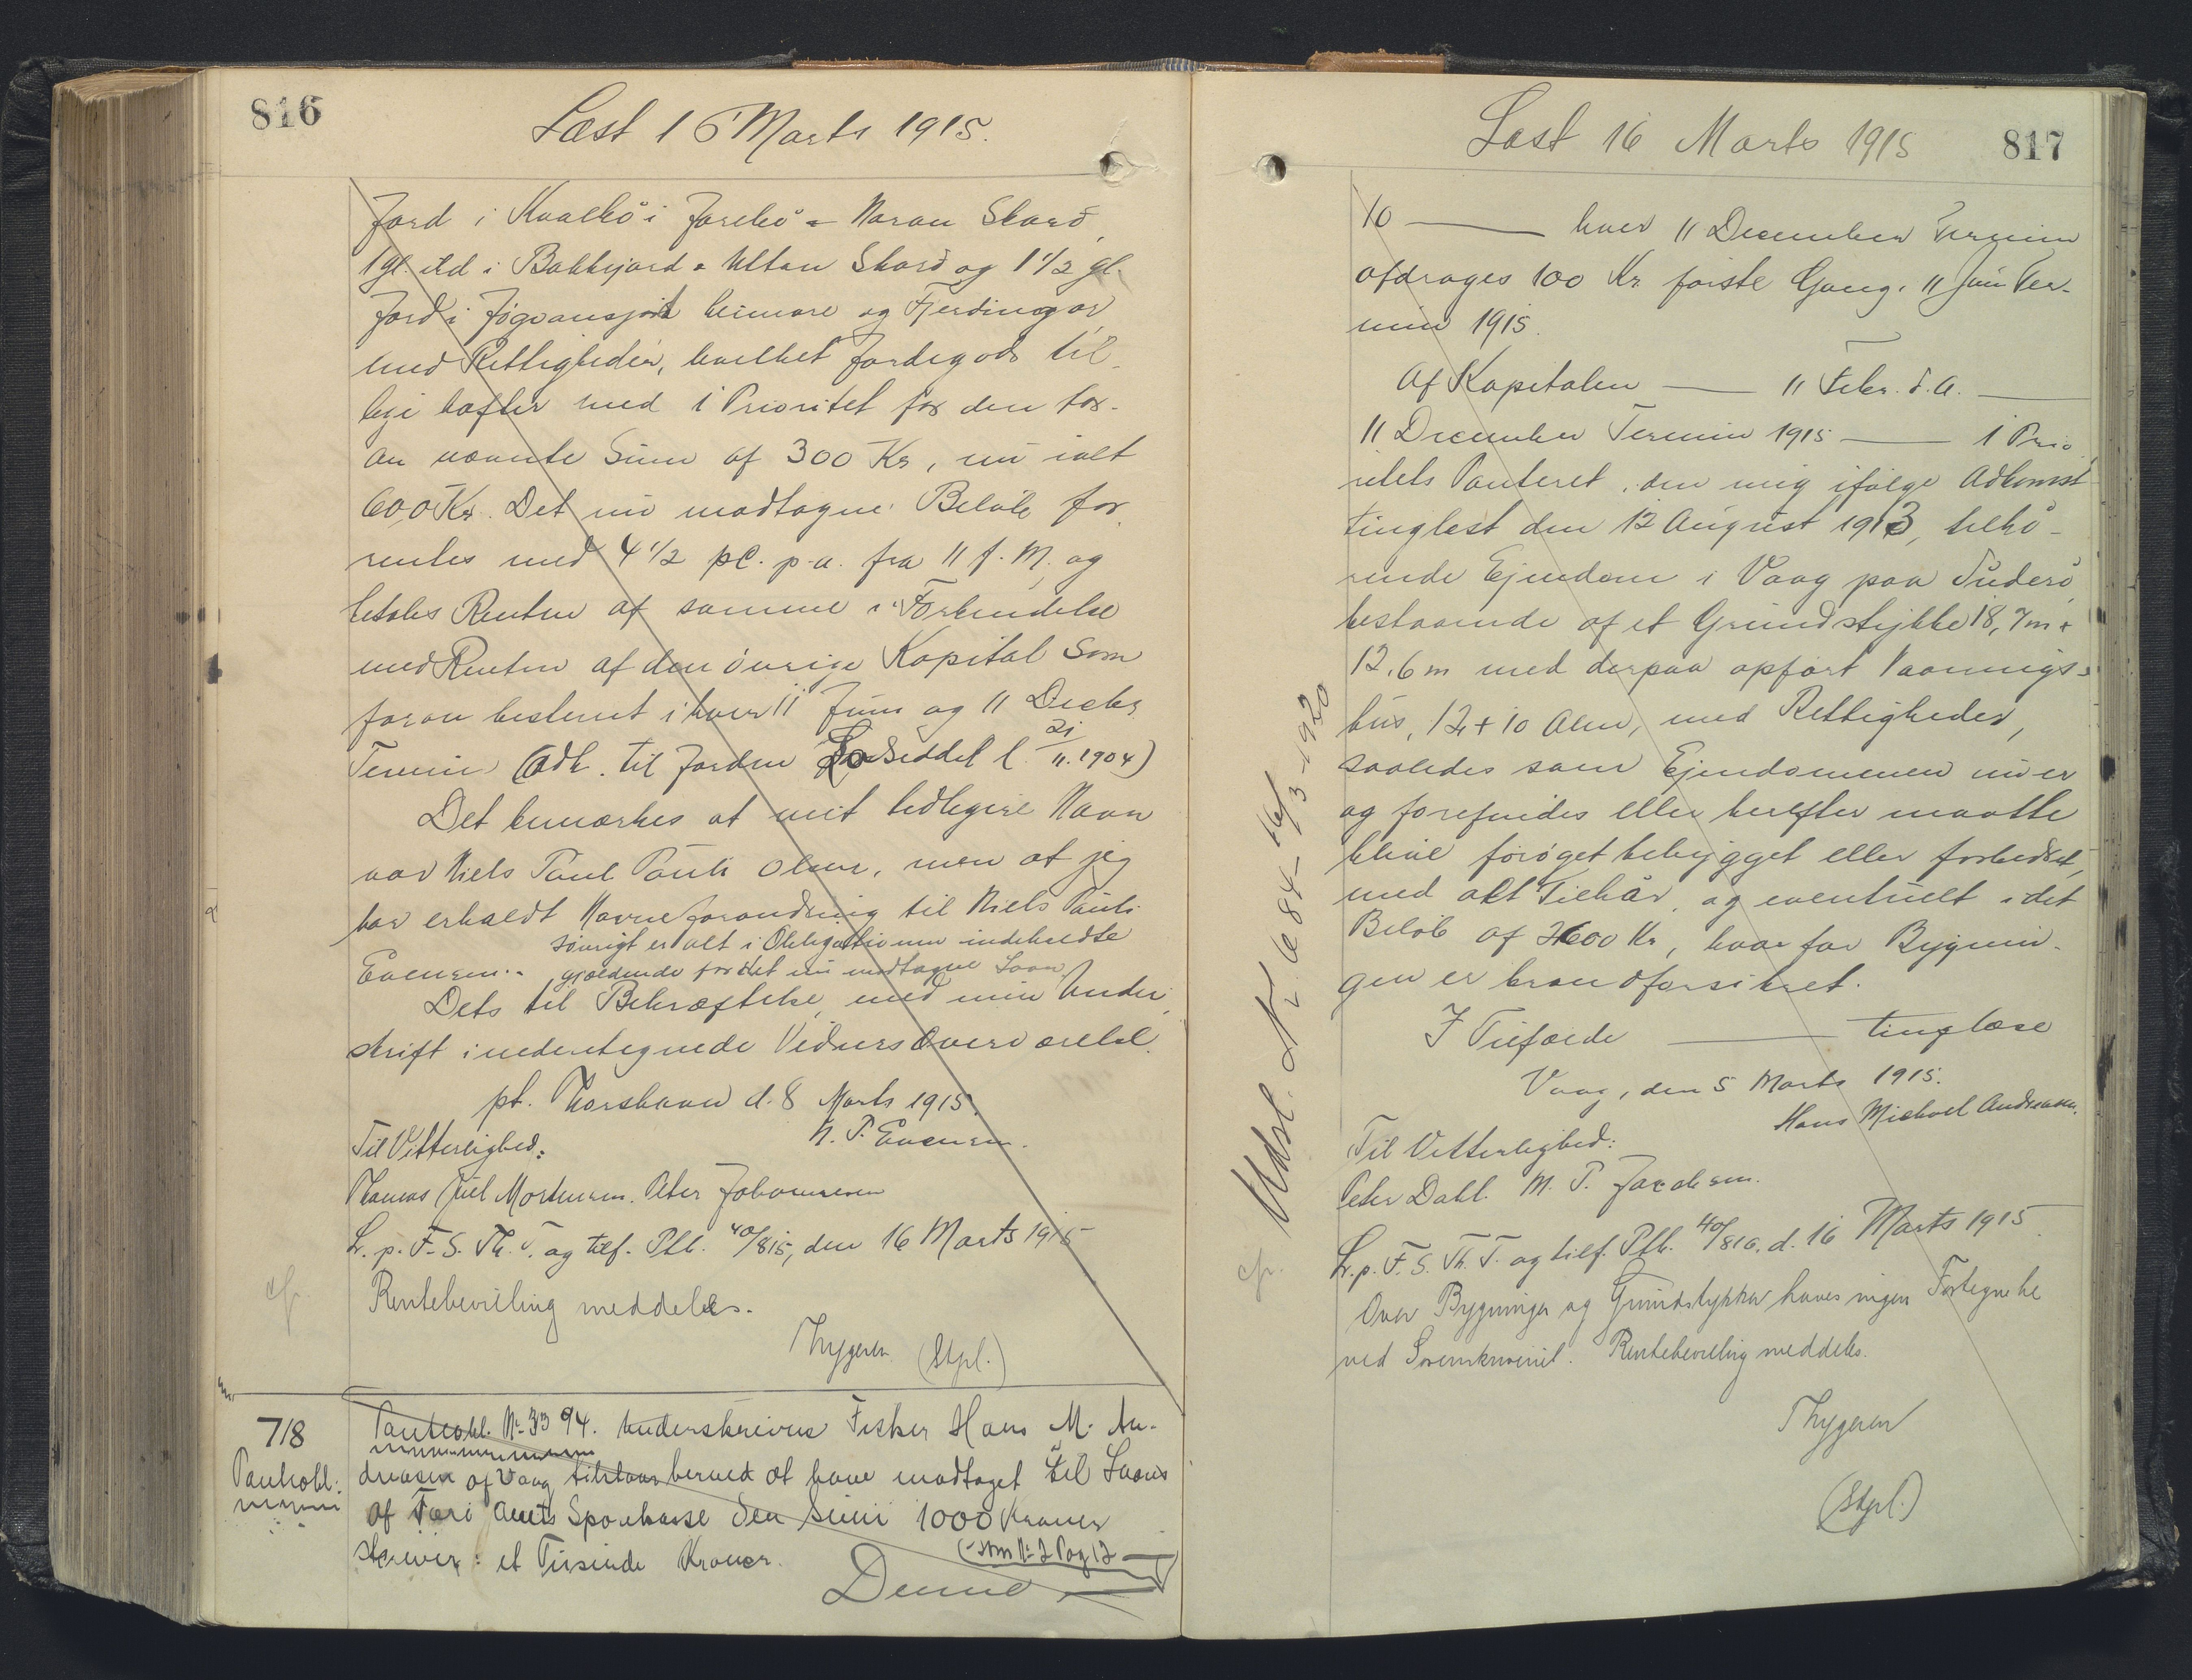 816
Læst 16 Marts 1915.
Jord i Kvalbö i Jorebö = Noran Skard,
1 gl. ild i Bakkejord = Uttan Skard og 1 1/2 gl.
Jord i Jógvansjord heimare og Fjerdingar
med Rettigheder, hvilket Jordegods til-
lige hæfter med 1 Prioritet for den for-
an nævnte Sum af 300 Kr, nu ialt
600 Kr. Det nu modtagne Belöb for-
rentes med 4 1/2 pC. p.a. fra 11 f. M. og
betales Renten af samme i Forbindelse
med Renten af den övrige Kapital som
foran bestemt i hver 11 Juni og 11 Decbr
Termin (Adk. til Jorden Lodseddel l. 21/11.1904)
Det bemærkes at mit tidligere Navn
var Niels Paul Pauli Olsen, men at jeg
har erholdt Navneforandring til Niels Pauli
Evensen. - iövrigt er alt i Obligationen indeholdte
gjældende for det nu modtagne Laan
Dets til Bekræftelse med min Under-
skrift i undertegnede Vidners Overværelse.
pt. Thorshavn d. 8 Marts 1915.
N. P. Evensen.
Til Vitterlighed:
Thomas Juel Mortensen. Peter Johannesen
L. p. F. S. Th. T. og tilf. Ptb. 40/815, den 16 Marts 1915
cfr.
Rentebevilling meddeles.
Thygesen (Stpl.)
718
Panteobl.
Panteobl. No 3394. Underskrevne Fisker Hans M. An-
dreasen af Vaag tilstaar herved at have modtaget til Laans
af Færö Amts Sparekasse den Sum 1000 Kroner
skriver: et Tusinde Kroner. (- som No 2 Pag 12 —
Denne
Læst 16 Marts 1915
817
10 — hver 11 December Termin
afdrages 100 Kr förste Gang i 11 Juni Ter-
min 1915.
Af Kapitalen — 11 Febr. d. A. —
11 December Termin 1915 — 1 Prio
ritets Panteret i den mig ifölge Adkomst
tinglest den 12 August 1913, tilhö-
rende Ejendom i Vaag paa Suderö,
bestaaende af et Grundstykke 18,7 m +
12,6 m med derpaa opfört Vaanings-
hus, 12 + 10 Alen, med Rettigheder,
saaledes som Ejendommen nu er
og forefindes eller herefter maatte
blive foröget bebygget eller forbedret,
med alt Tilhör, og eventuelt i det
Belöb af 2600 Kr, hvorfor Bygnin-
gen er brandforsikret.
I Tilfælde — tinglæse
Vaag, den 5 Marts 1915.
Hans Michael Andreasen.
Til Vitterlighed:
Peter Dahl. M. P. Jacobsen.
L. p. F. S. Th. T. og tilf. Ptb. 40/816, d. 16 Marts 1915
cfr.
Over Bygninger og Grundstykker haves ingen Fortegnelse
ved Sorenskriveriet. Rentebevilling meddeles.
Thygesen
(Stpl.)
Udsl. No 684 - 16/3 - 1920